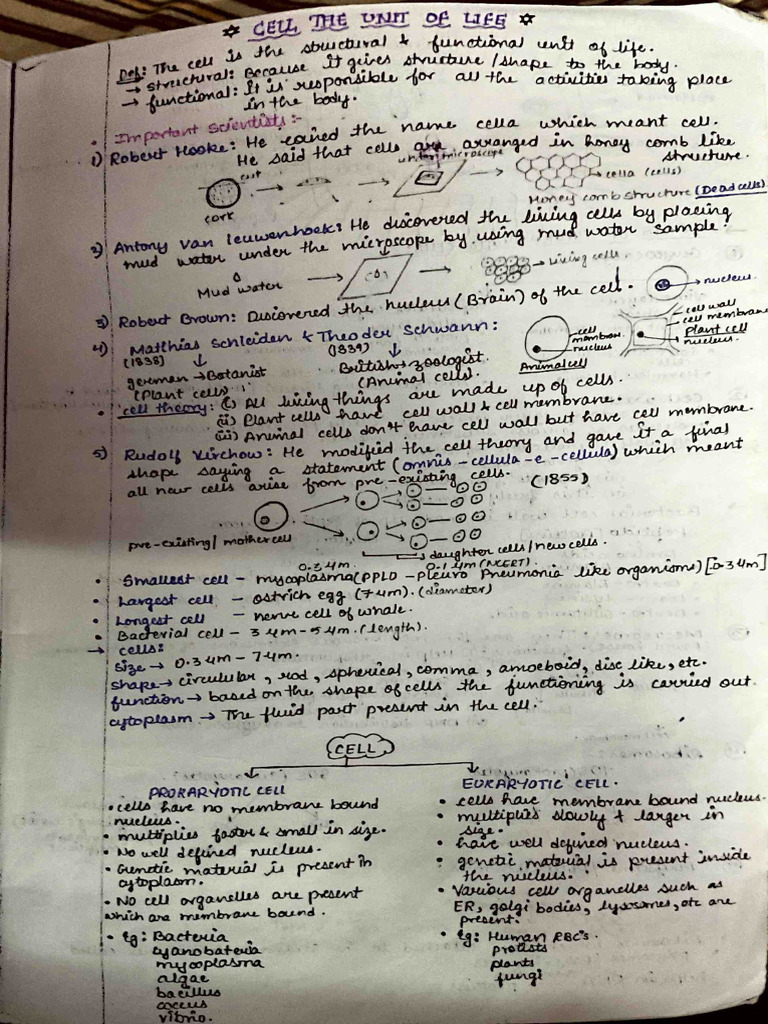 ☆ CELL THE UNIT OF LIFE ☆
Def: The cell is the structural & functional unit of life.
→ structural: Because it gives structure/shape to the body.
→ functional: It is responsible for all the activities taking place
in the body.
• Important Scientists:-
1) Robert Hooke: He coined the name cella which meant cell.
He said that cells are arranged in honey comb like
structure.
cut
under microscope
cella (cells)
cork
Honey comb structure (Dead cells).
2) Antony Van Leuwenhoek: He discovered the living cells by placing
mud water under the microscope by using mud water sample.
Mud water
Living cells
3) Robert Brown: Discovered the nucleus (Brain) of the cell.
nucleus
4) Matthias Schleiden & Theoder Schwann:
(1838) (1839)
german → Botanist British → zoologist
(Plant cells) (Animal cells).
cell membran
nucleus
Animal cell
cell wall
cell membrane
Plant cell
nucleus
• cell theory: (i) All living things are made up of cells.
(ii) Plant cells have cell wall & cell membrane.
(iii) Animal cells don't have cell wall but have cell membrane.
5) Rudolf Virchow: He modified the cell theory and gave it a final
shape saying a statement (omnis - cellula - e - cellula) which meant
all new cells arise from pre-existing cells. (1855)
pre-existing/mother cell
daughter cells/new cells.
0.3 µm 0.1 µm (NCERT)
• Smallest cell - mycoplasma (PPLO - Pleuro Pneumonia like organisms) [0.3 µm]
• Largest cell - ostrich egg (7 µm). (diameter)
• Longest cell - nerve cell of whale.
• Bacterial cell - 3 µm - 5 µm. (length).
→ cells:
size → 0.3 µm - 7 µm.
shape → circular, rod, spherical, comma, amoeboid, disc like, etc.
function → based on the shape of cells the functioning is carried out.
cytoplasm → The fluid part present in the cell.
CELL
PROKARYOTIC CELL
• cells have no membrane bound
nucleus.
• multiplies faster & small in size.
• No well defined nucleus.
• Genetic material is present in
cytoplasm.
• No cell organelles are present
which are membrane bound.
• Eg: Bacteria
cyanobateria
mycoplasma
algae
bacillus
coccus
vibrio.
EUKARYOTIC CELL.
• cells have membrane bound nucleus.
• multiplies slowly & larger in
size.
• have well defined nucleus.
• genetic material is present inside
the nucleus.
• Various cell organelles such as
ER, golgi bodies, lysosomes, etc are
present.
• Eg: Human RBC's.
protists
plants
fungi